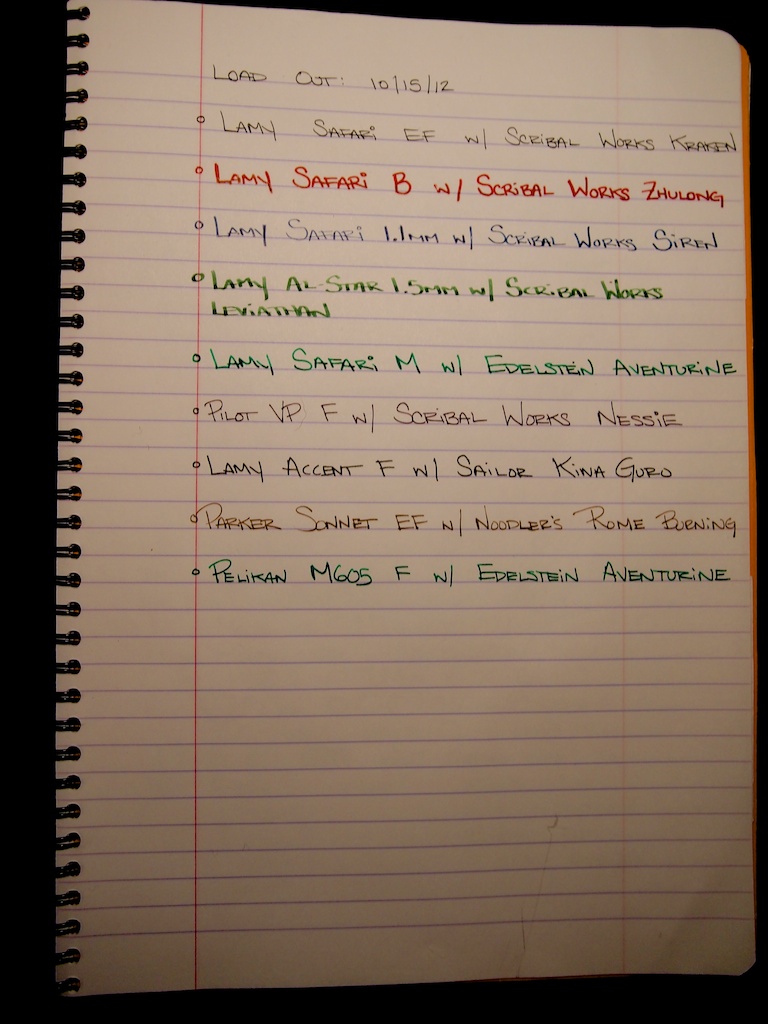 LOAD OUT: 10/15/12
LAMY SAFARI EF W/ SCRIBAL WORKS KRAKEN
LAMY SAFARI B W/ SCRIBAL WORKS ZHULONG
LAMY SAFARI 1.1MM W/ SCRIBAL WORKS SIREN
LAMY AL-STAR 1.5MM W/ SCRIBAL WORKS
LEVIATHAN
LAMY SAFARI M W/ EDELSTEIN AVENTURINE
PILOT VP F W/ SCRIBAL WORKS NESSIE
LAMY ACCENT F W/ SAILOR KINA GURO
PARKER SONNET EF W/ NOODLER'S ROME BURNING
PELIKAN M605 F W/ EDELSTEIN AVENTURINE